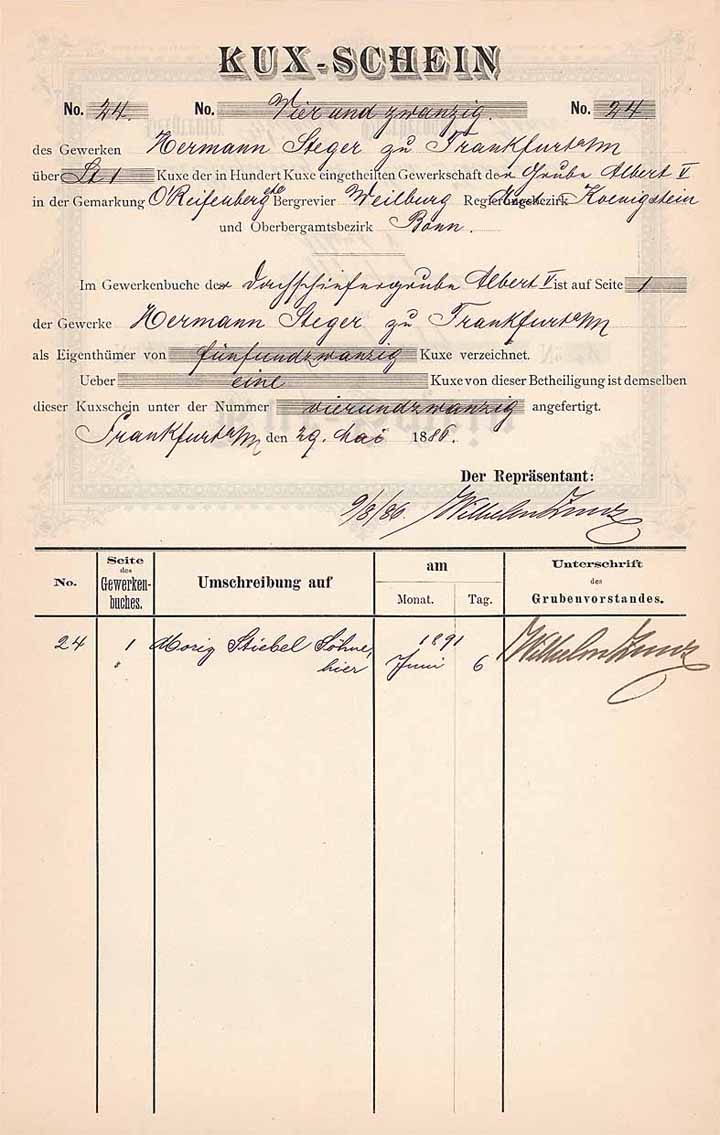 KUX-SCHEIN
No. 24. No. Vier und zwanzig. No. 24
des Gewerken Hermann Steger zu Frankfurt a/M
über St 1 Kuxe der in Hundert Kuxe eingetheilten Gewerkschaft der Grube Albert V
in der Gemarkung O'Reifenberg Bergrevier Weilburg Regierungsbezirk Koenigstein
und Oberbergamtsbezirk Bonn.
Im Gewerkenbuche der Dachschiefergrube Albert V ist auf Seite 1
der Gewerke Hermann Steger zu Frankfurt a/M
als Eigenthümer von fünfundzwanzig Kuxe verzeichnet.
Ueber eine Kuxe von dieser Betheiligung ist demselben
dieser Kuxschein unter der Nummer vierundzwanzig angefertigt.
Frankfurt a/M den 29. Mai 1886.
Der Repräsentant:
9/8/86. Wilhelm
No. Seite des Gewerken-buches. Umschreibung auf am Monat. Tag. Unterschrift des Grubenvorstandes.
24 1 Moriz Stiebel Söhne, 1891 Wilhelm
" hier Juni 6